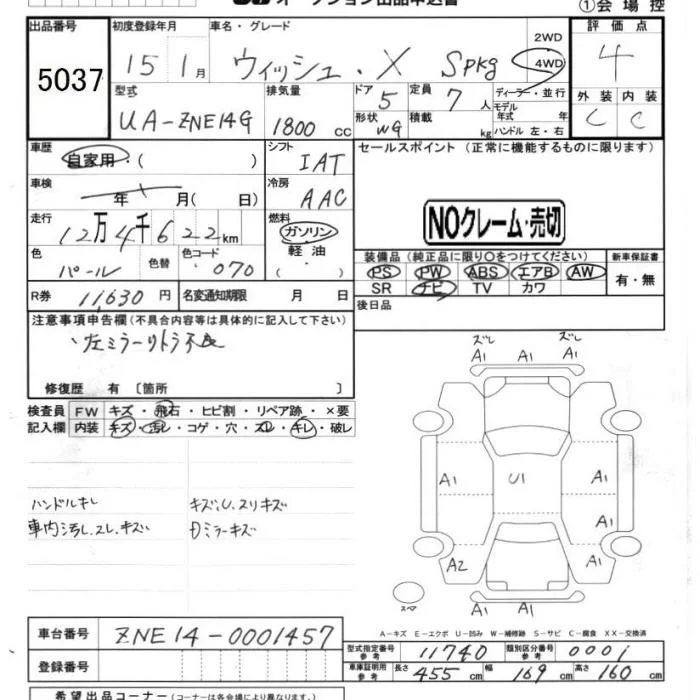 オークション出品申込書
①会場控
出品番号 初度登録年月 車名・グレード 2WD 4WD 評価点
5037 15 1月 ウィッシュ・X Spkg 4
型式 排気量 ドア 5 定員 7人 ディーラー・並行 外装 内装
UA-ZNE14G 1800cc 形状 WG 積載 kg モデル年式 年 ハンドル 左・右 C C
車歴 自家用・( ) シフト IAT セールスポイント(正常に機能するものに限ります)
車検 年 月( 日) 冷房 AAC
走行 12万4千622km 燃料 ガソリン 軽油 ( ) NOクレーム・売切
色 パール 色替 色コード 070
装備品(純正品に限り○をつけてください) 新車保証書
PS PW ABS エアB AW 有・無
SR ナビ TV カワ
R券 11,630円 名変通知期限 月 日 後日品
注意事項申告欄(不具合内容等は具体的に記入して下さい)
左ミラーリトラ不良
修復歴 有〔箇所 〕
検査員 FW キズ・飛石・ヒビ割・リペア跡・×要
記入欄 内装 キズ・汚レ・コゲ・穴・スレ・キレ・破レ
ズレ ズレ
A1 A1 A1
A1 U1 A1
A1
A2 A1
A1 A1
スマ
ハンドルキレ キズ、U、スリキズ
車内汚レ、スレ、キズ Dミラーキズ
A-キズ E-エクボ U-凹み W-補修跡 S-サビ C-腐食 XX-交換済
車台番号 ZNE14-0001457
型式指定番号 参考 11740 類別区分番号 参考 0001
登録番号
車庫証明用 参考 長さ 455cm 幅 169cm 高さ 160cm
希望出品コーナー(コーナーは各会場により異なります。)